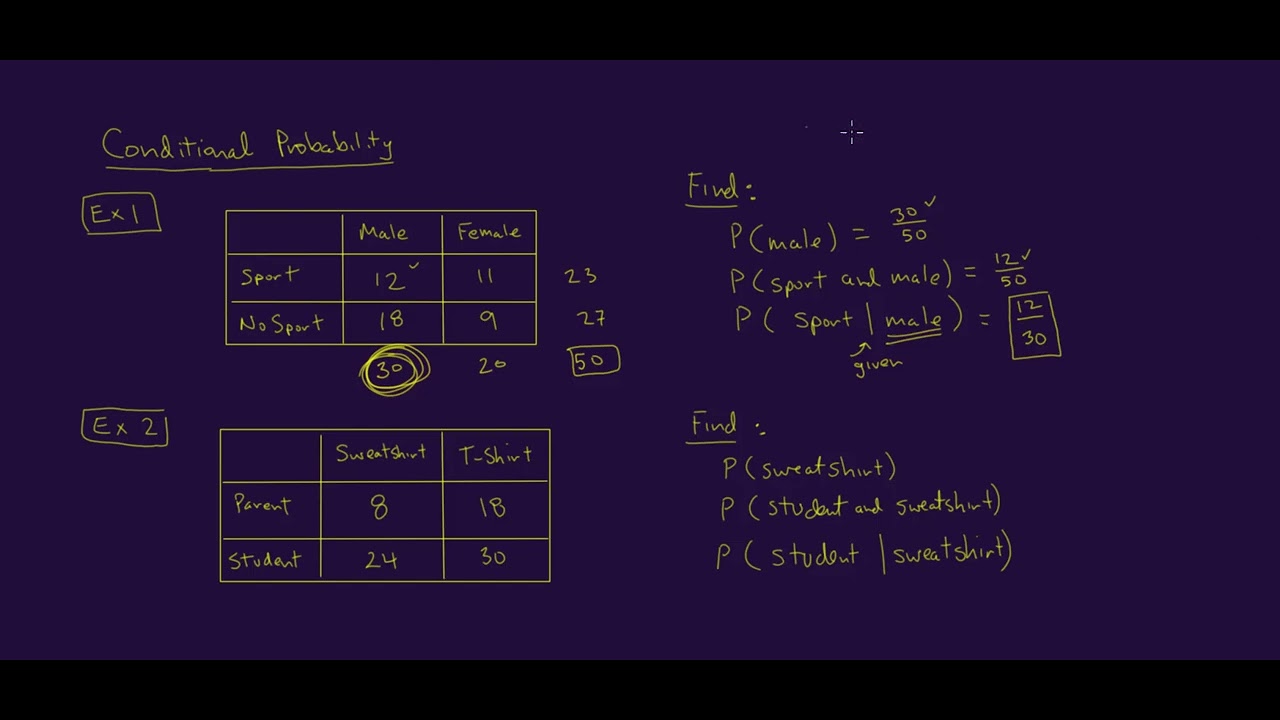 Conditional Probability
Ex 1
Male Female
Sport 12 11 23
No Sport 18 9 27
30 20 50
Find:
P(male) = 30/50
P(sport and male) = 12/50
P( sport | male ) = 12/30
given
Ex 2
Sweatshirt T-Shirt
Parent 8 18
Student 24 30
Find :
P(sweatshirt)
P (student and sweatshirt)
P ( student | sweatshirt)